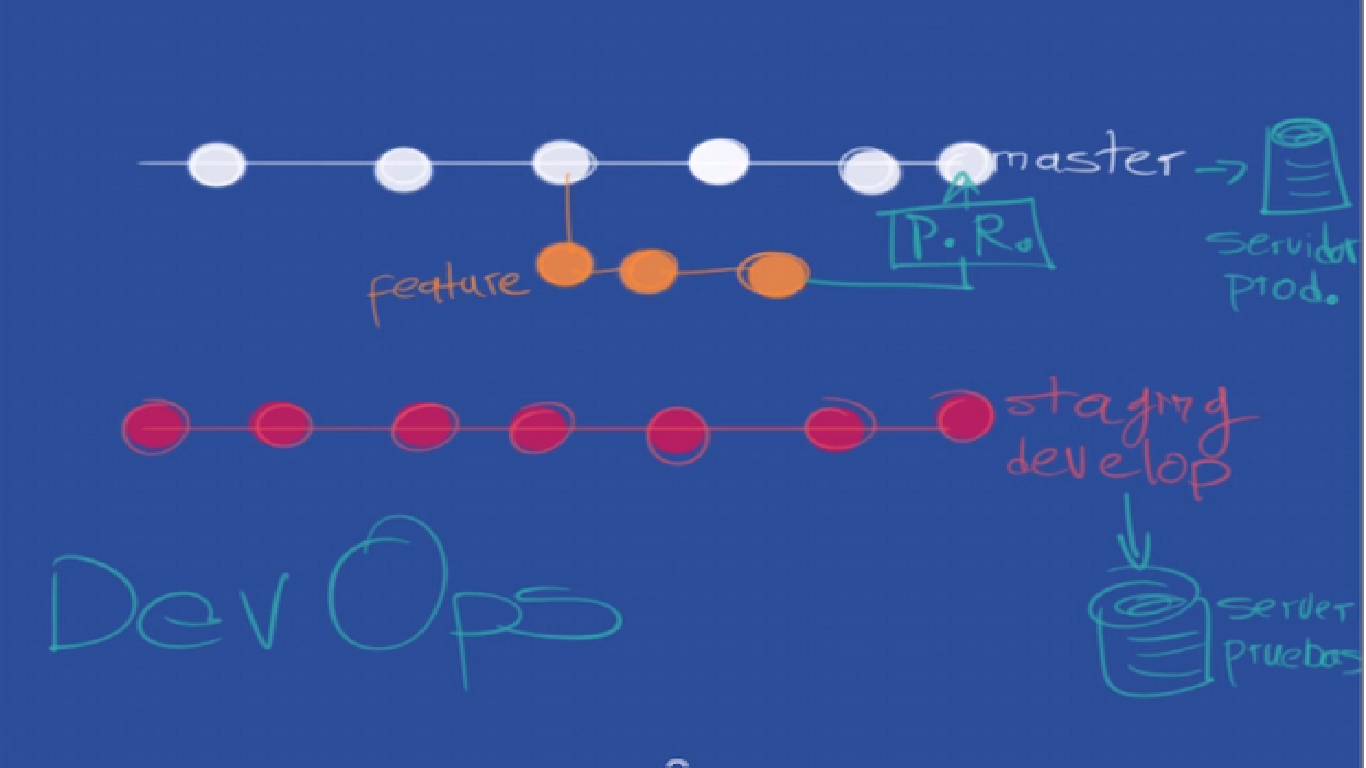 master
P. R.
servidor
prod.
feature
staging
develop
DevOps
server
pruebas